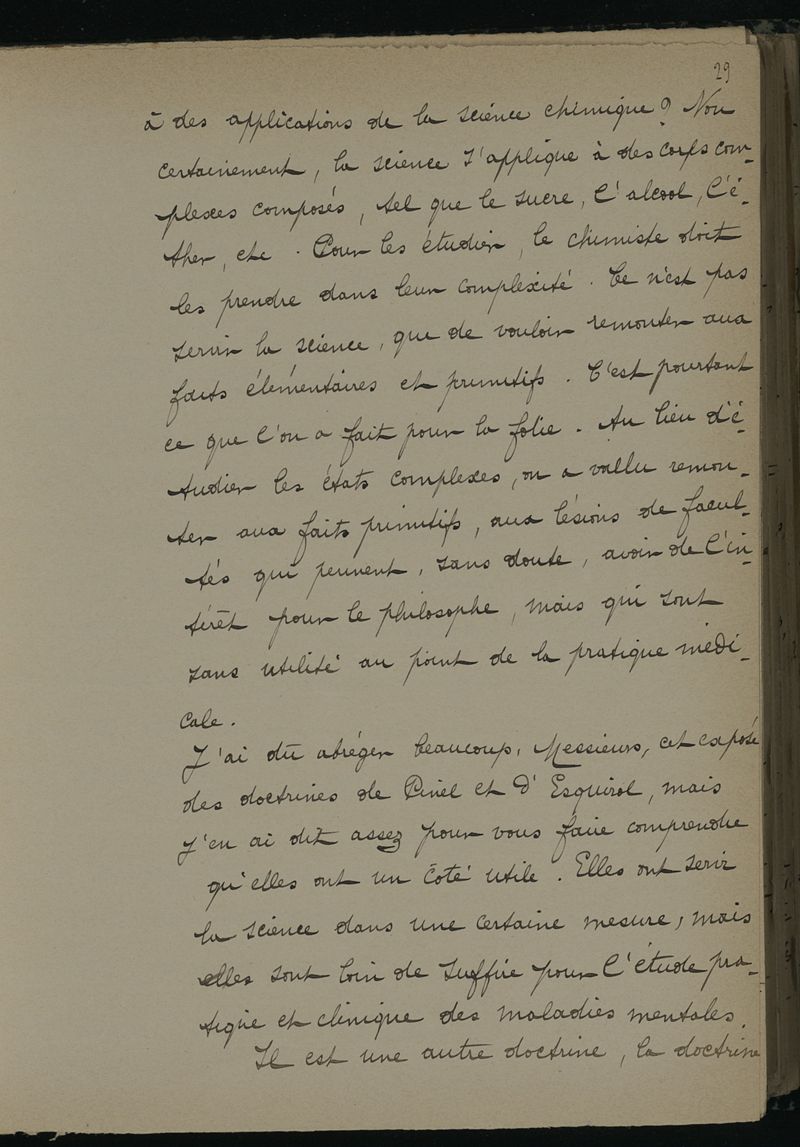 29
à des applications de la science chimique ? Non
certainement, la science s'applique à des corps com-
plexes composés, tel que le sucre, l'alcool, l'é-
ther, etc. Pour les étudier, le chimiste doit
les prendre dans leur complexité. Ce n'est pas
servir la science, que de vouloir remonter aux
faits élémentaires et primitifs. C'est pourtant
ce que l'on a fait pour la folie. Au lieu d'é-
tudier les états complexes, on a vallu remon-
ter aux faits primitifs, aux lésions de facul-
tés qui peuvent, sans doute, avoir de l'in-
térêt pour le philosophe, mais qui sont
sans utilité au point de la pratique médi-
cale.
J'ai dû abréger beaucoup, Messieurs, cet exposé
des doctrines de Pinel et d'Esquirol, mais
j'en ai dit assez pour vous faire comprendre
qu'elles ont un côté utile. Elles ont servi
la science dans une certaine mesure, mais
elles sont loin de suffire pour l'étude pra-
tique et clinique des maladies mentales.
Il est une autre doctrine, la doctrine